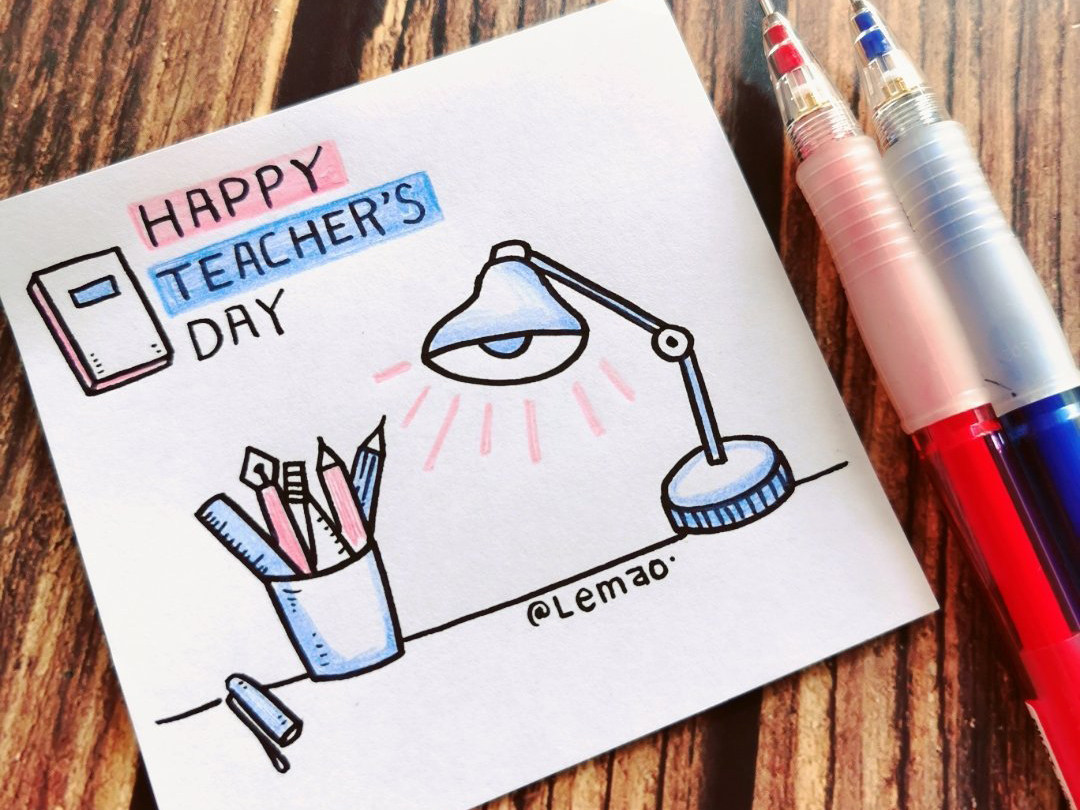 HAPPY
TEACHER'S
DAY
@Lemao.